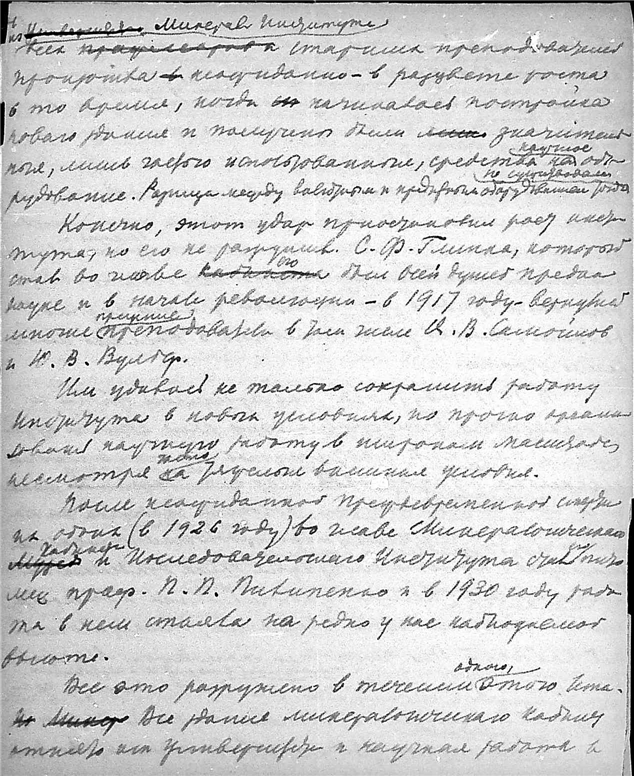 из Университета Минерал. Института
Всех профессоров и старших преподавателей
произошла в неожиданно – в расцвете роста
в то время, когда он начиналась постройка
новаго здания и получены были лишь значитель
ныя, лишь частью использованные, средства на научное обо
рудование. Разница между
Конечно, этот удар приостановил рост инсти
тута, но его не разрушил. С. Ф. Глинка, который
стал во главе его был всей душой предан
науке и в начале революции – в 1917 году – вернулись
многие прежние преподаватели в том числе Я. В. Самойлов
и Ю. В. Вульф.
Им удалось не только сохранить работу
Института в новых условиях, но прочно органи
зовать научную работу в широком масштабе,
несмотря на тяжелые внешния условия.
После неожиданной преждевременной смерти
их обоих (в 1926 году) во главе Минералогическаго
Кабинета и Исследовательского Института
проф. П. П. Пилипенко и в 1930 году рабо
та в нем стояла на редко у нас наблюдаемой
высоте.
Все это разрушено в течении одного, этого
Все здание минералогическаго Кабинета
отнято от Университета и научная работа в